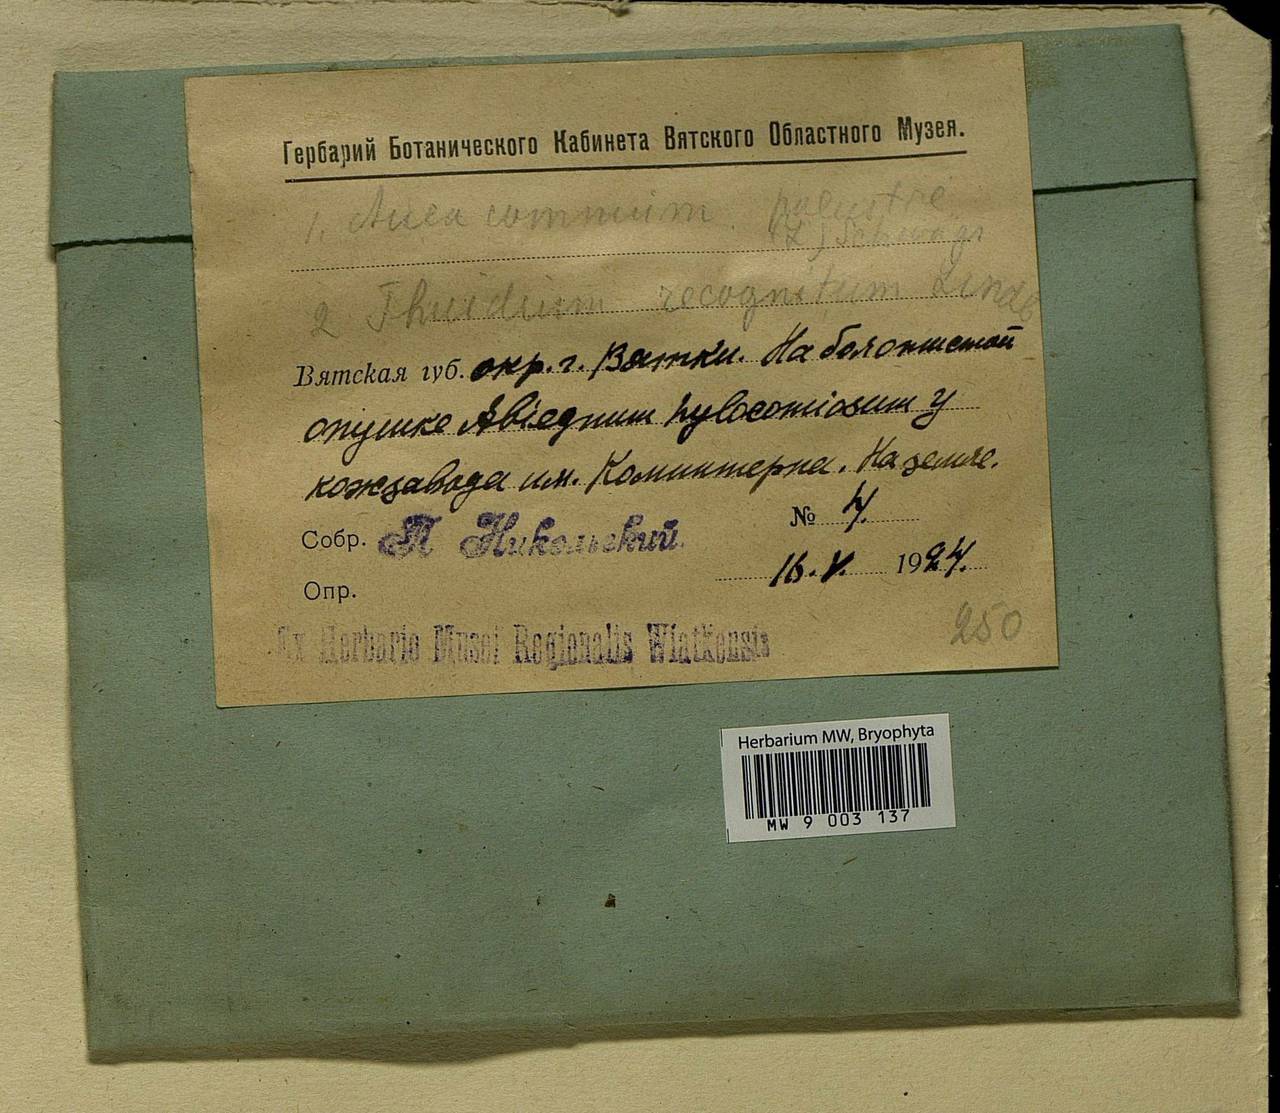 Гербарий Ботанического Кабинета Вятского Областного Музея.
1. Aulacomnium palustre
(L) Schwägr
2 Thuidium recognitum Lindb
Вятская губ. окр. г. Вятки. На
опушке Abiegnum hylocomiosum у
кожзавода им. Коминтерна. На земле.
Собр. П Никольский.
№ 4.
Опр.
16.V. 1924.
Ex Herbario Musei Regionalis Wiatkensis
250
Herbarium MW, Bryophyta
MW 9 003 137